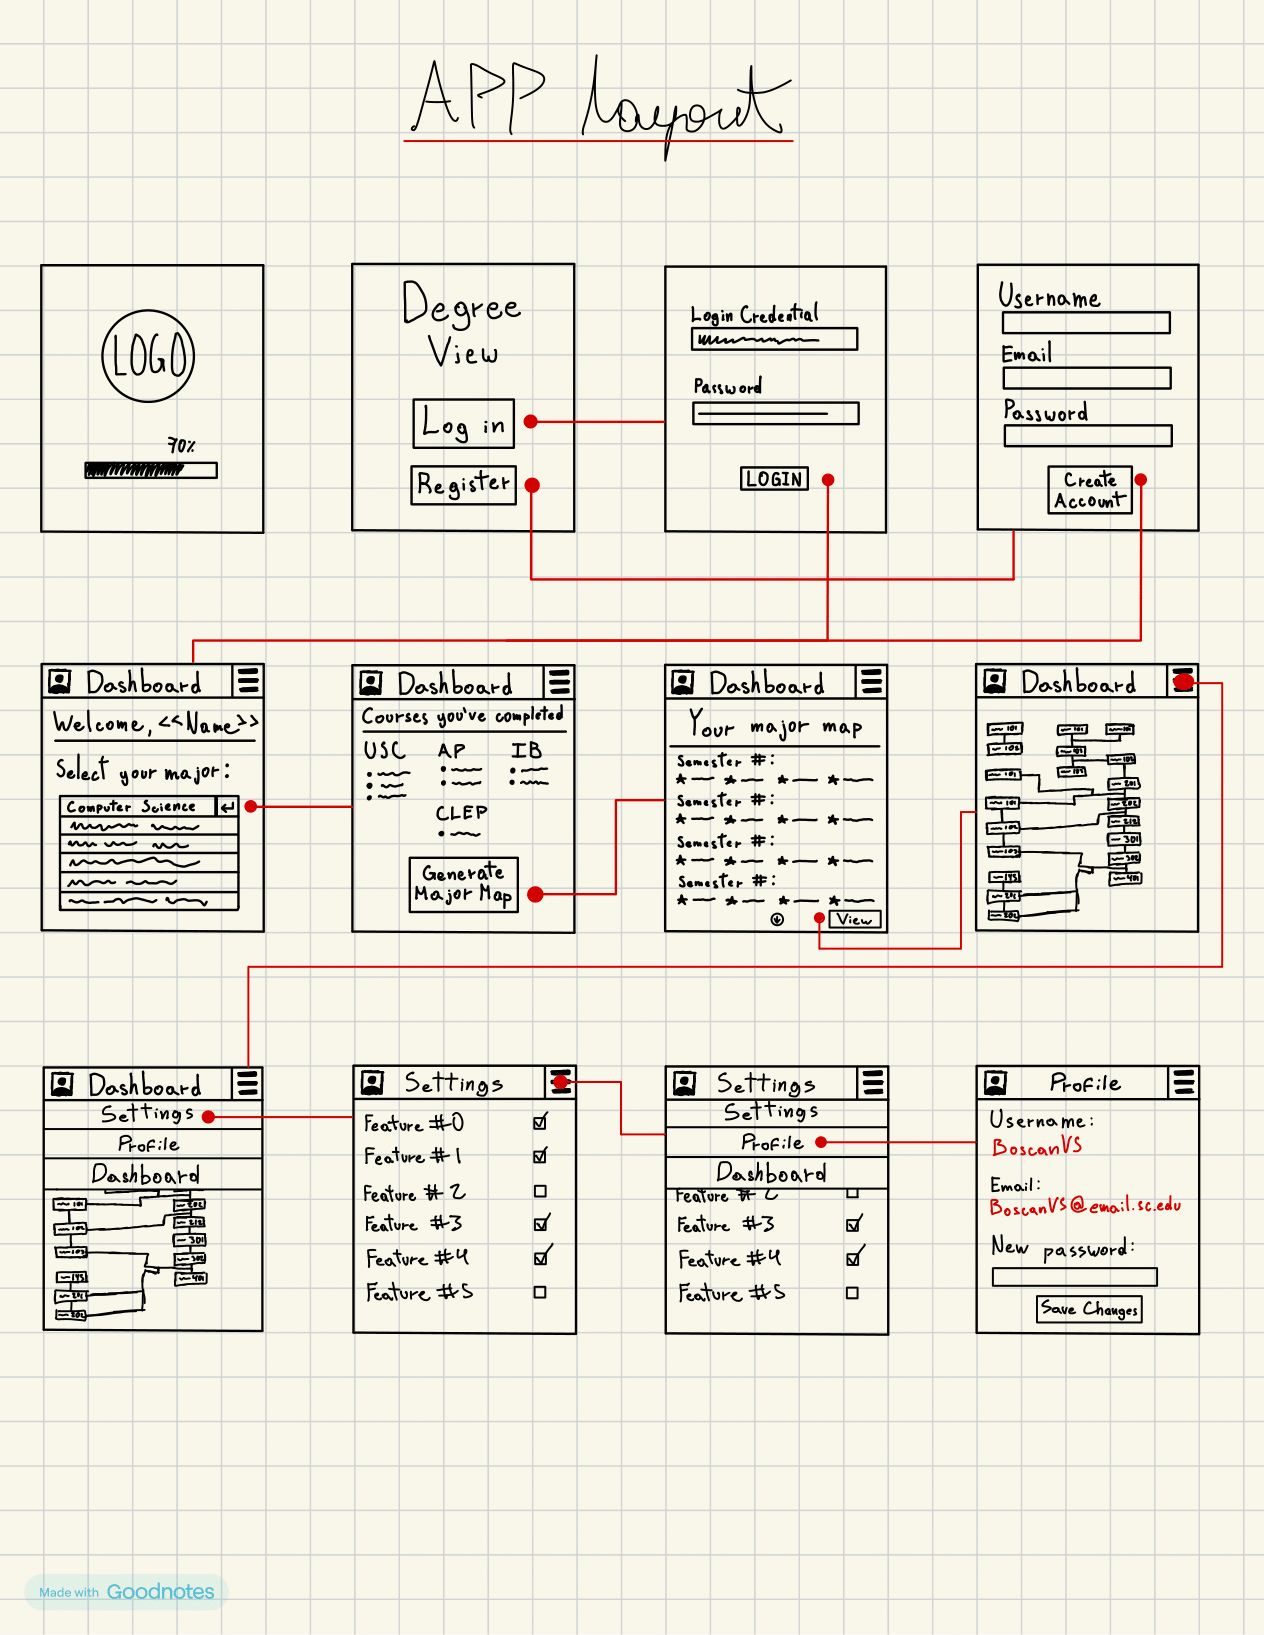 APP Layout
LOGO
70%
Degree
View
Log in
Register
Login Credential
Password
LOGIN
Username
Email
Password
Create
Account
Dashboard
Welcome, <<Name>>
Select your major:
Computer Science
Dashboard
Courses you've completed
USC AP IB
CLEP
Generate
Major Map
Dashboard
Your major map
Semester #:
Semester #:
Semester #:
Semester #:
View
Dashboard
101
102
101
101
102
103
145
202
201
202
212
301
302
401
Dashboard
Settings
Profile
Dashboard
101
202
102
212
103
301
302
145
401
202
Settings
Feature #0
Feature #1
Feature #2
Feature #3
Feature #4
Feature #5
Settings
Settings
Profile
Dashboard
Feature #2
Feature #3
Feature #4
Feature #5
Profile
Username:
BoscanVS
Email:
BoscanVS@email.sc.edu
New password:
Save Changes
Made with Goodnotes